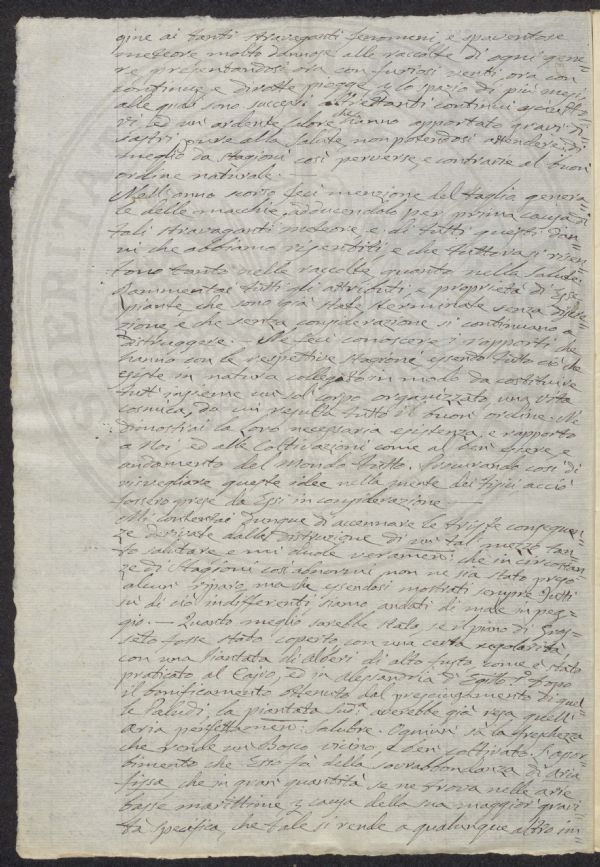 gine ai tanti stravaganti fenomeni, e spaventose
meteore molto dannose alle raccolte di ogni gene=
re presentandosi ora con furiosi venti, ora con
continue e dirotte piogge p lo spazio di più mesi,
alle quali sono succeduti altrettanti continui
ed un' ardente calore che hanno apportato gravi di=
sastri pure alla Salute, non potendosi attendere di
meglio da stagioni così perverse, e contrarie al buon
ordine naturale. —
Nell' anno scorso feci menzione del taglio genera=
le delle macchie, adducendolo per prima causa di
tali stravaganti meteore, e di tutti questi dan=
ni che abbiamo risentiti, e che tuttora si risen=
tono tanto nelle raccolte quanto nella Salute.
Rammentai tutti gli attributi, e proprietà di Esse
piante, che sono già state sterminate senza discre=
zione, e che senza considerazione si continuano a
distruggere. — Ne feci conoscere i rapporti che
hanno con le respettive Stagione, essendo tutto ciò che
esiste in natura collegato in modo da costituire
tutt' insieme un sol corpo organizzato, una vita
cosmica, da cui resulta tutto il buon ordine. Ne
dimostrai la loro necessaria esistenza, e rapporto
a Noi, ed alle Coltivazioni come al ben essere, e
andamento del Mondo tutto. Procurando così di
risvegliare queste idee nella mente dei Fisici acciò
fossero prese da Essi in considerazione —
Mi contentai dunque di accennare le triste conseguen=
ze derivate dalla distruzione di un tal mezzo tan=
to salutare e mi duole veramen: che in circostan=
ze di Stagioni così abnormi non ne sia stato preso
alcun riparo, ma che essendosi mostrati sempre tutti
su di ciò indifferenti siamo andati di male in peg=
gio. — Quanto meglio sarebbe stato, se il piano di Gros=
seto fosse stato coperto con una certa regolarità
con una Piantata di Alberi di alto fusto, come è stato
praticato al Cairo, ed in Alessandria di Egitto. Dopo
il bonificamento ottenuto dal prosciugamento di quel=
le Paludi; la piantata Sud.a averebbe già resa quell'
aria perfettamen: salubre. Ognuno sà la freschezza
che rende un Bosco vicino, e ben coltivato, l' assor=
bimento che Esso fà della sovrabbondanza di aria
fissa, che in gran quantità se ne trova nelle arie
basse marittime p causa della sua maggior gravi
tà specifica, che tale si rende a qualunque altro im=